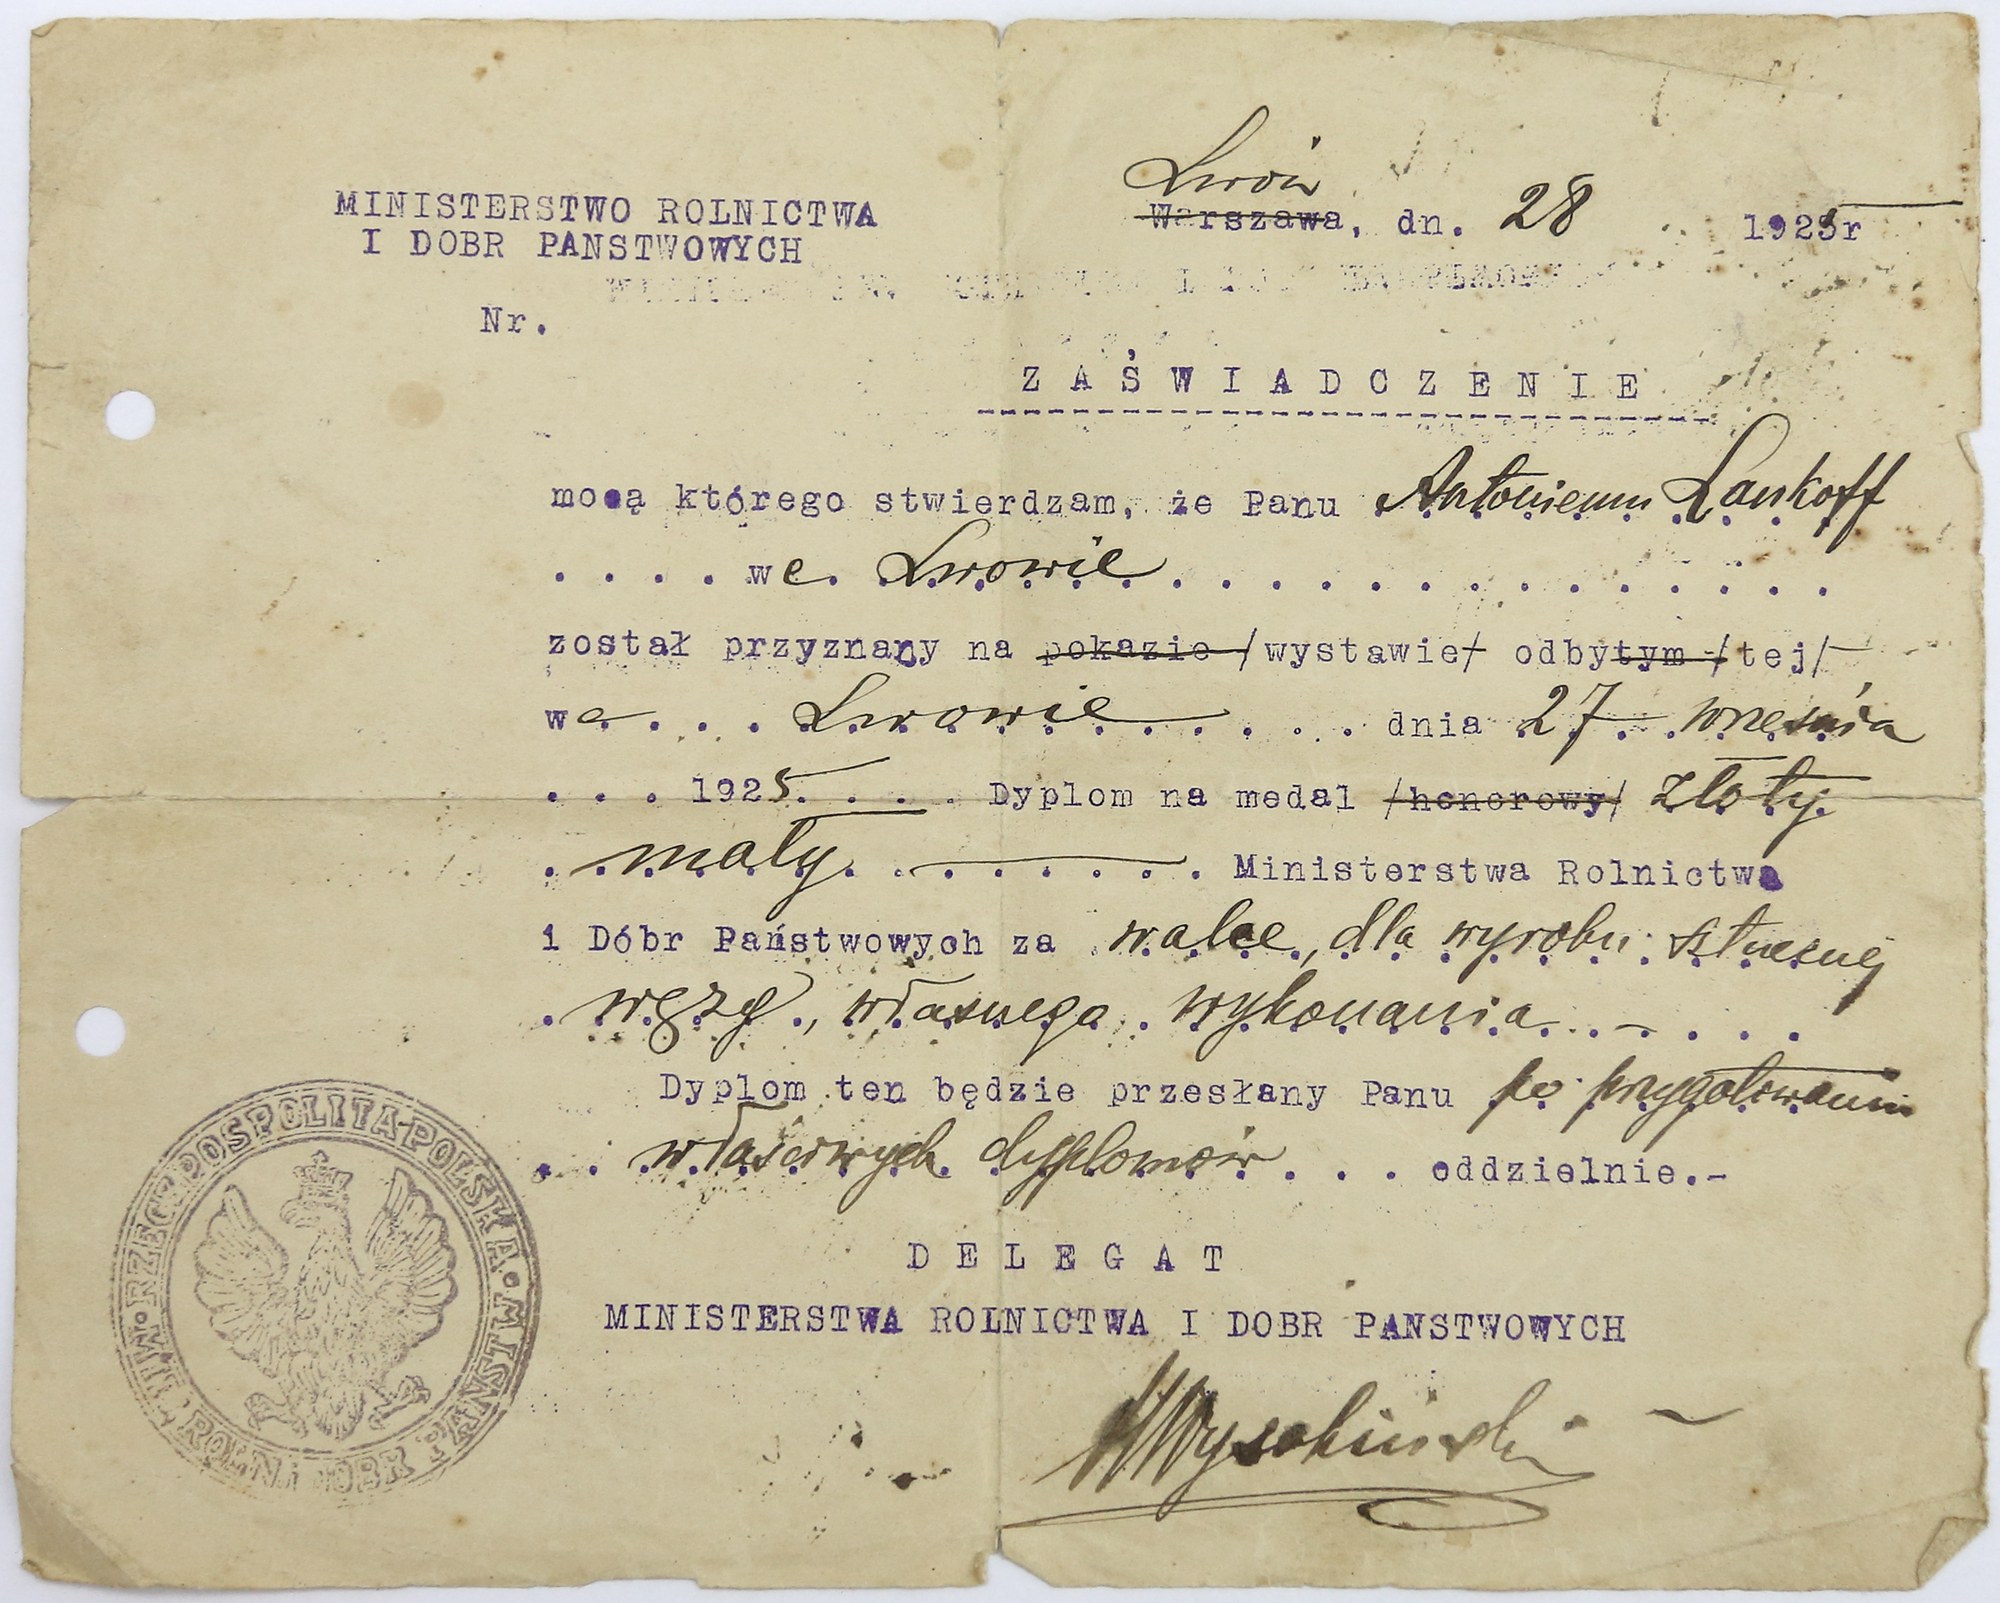 MINISTERSTWO ROLNICTWA
I DOBR PANSTWOWYCH
Nr.
Lwów
Warszawa, dn. 28 1925r
ZAŚWIADCZENIE
mocą którego stwierdzam, że Panu Antoniemu Lankoff
.... we. Lwowie..............
został przyznany na pokazie /wystawie/ odbytym /tej/
we... Lwowie...... dnia 27 września
... 1925.... Dyplom na medal /honorowy/ złoty
. mały........ Ministerstwa Rolnictwa
i Dóbr Państwowych za walce, dla wyrobu sztucznej
. węzy, własnego wykonania......
Dyplom ten będzie przesłany Panu po przygotowaniu
.. właściwych dyplomów... oddzielnie.-
DELEGAT
MINISTERSTWA ROLNICTWA I DOBR PANSTWOWYCH
Wysokiński
RZECZPOSPOLITA POLSKA • MINIST. ROLN. I DOBR PAŃSTW.